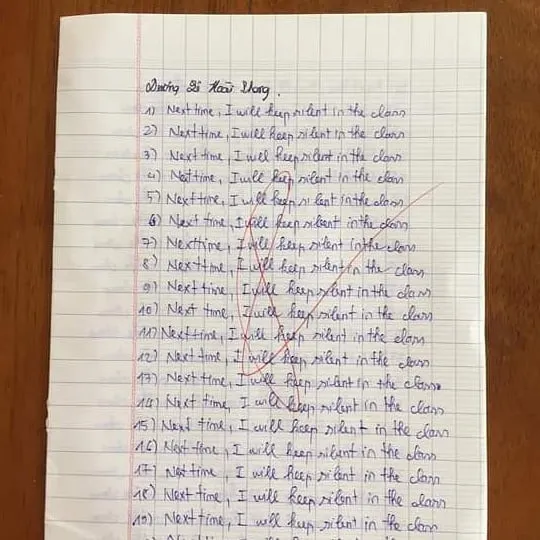 Dương Hoài Phong.
1) Next time, I will keep silent in the class
2) Next time, I will keep silent in the class
3) Next time, I will keep silent in the class
4) Next time, I will keep silent in the class
5) Next time, I will keep silent in the class
6) Next time, I will keep silent in the class
7) Next time, I will keep silent in the class
8) Next time, I will keep silent in the class
9) Next time, I will keep silent in the class
10) Next time, I will keep silent in the class
11) Next time, I will keep silent in the class
12) Next time, I will keep silent in the class
13) Next time, I will keep silent in the class
14) Next time, I will keep silent in the class
15) Next time, I will keep silent in the class
16) Next time, I will keep silent in the class
17) Next time, I will keep silent in the class
18) Next time, I will keep silent in the class
19) Next time, I will keep silent in the class